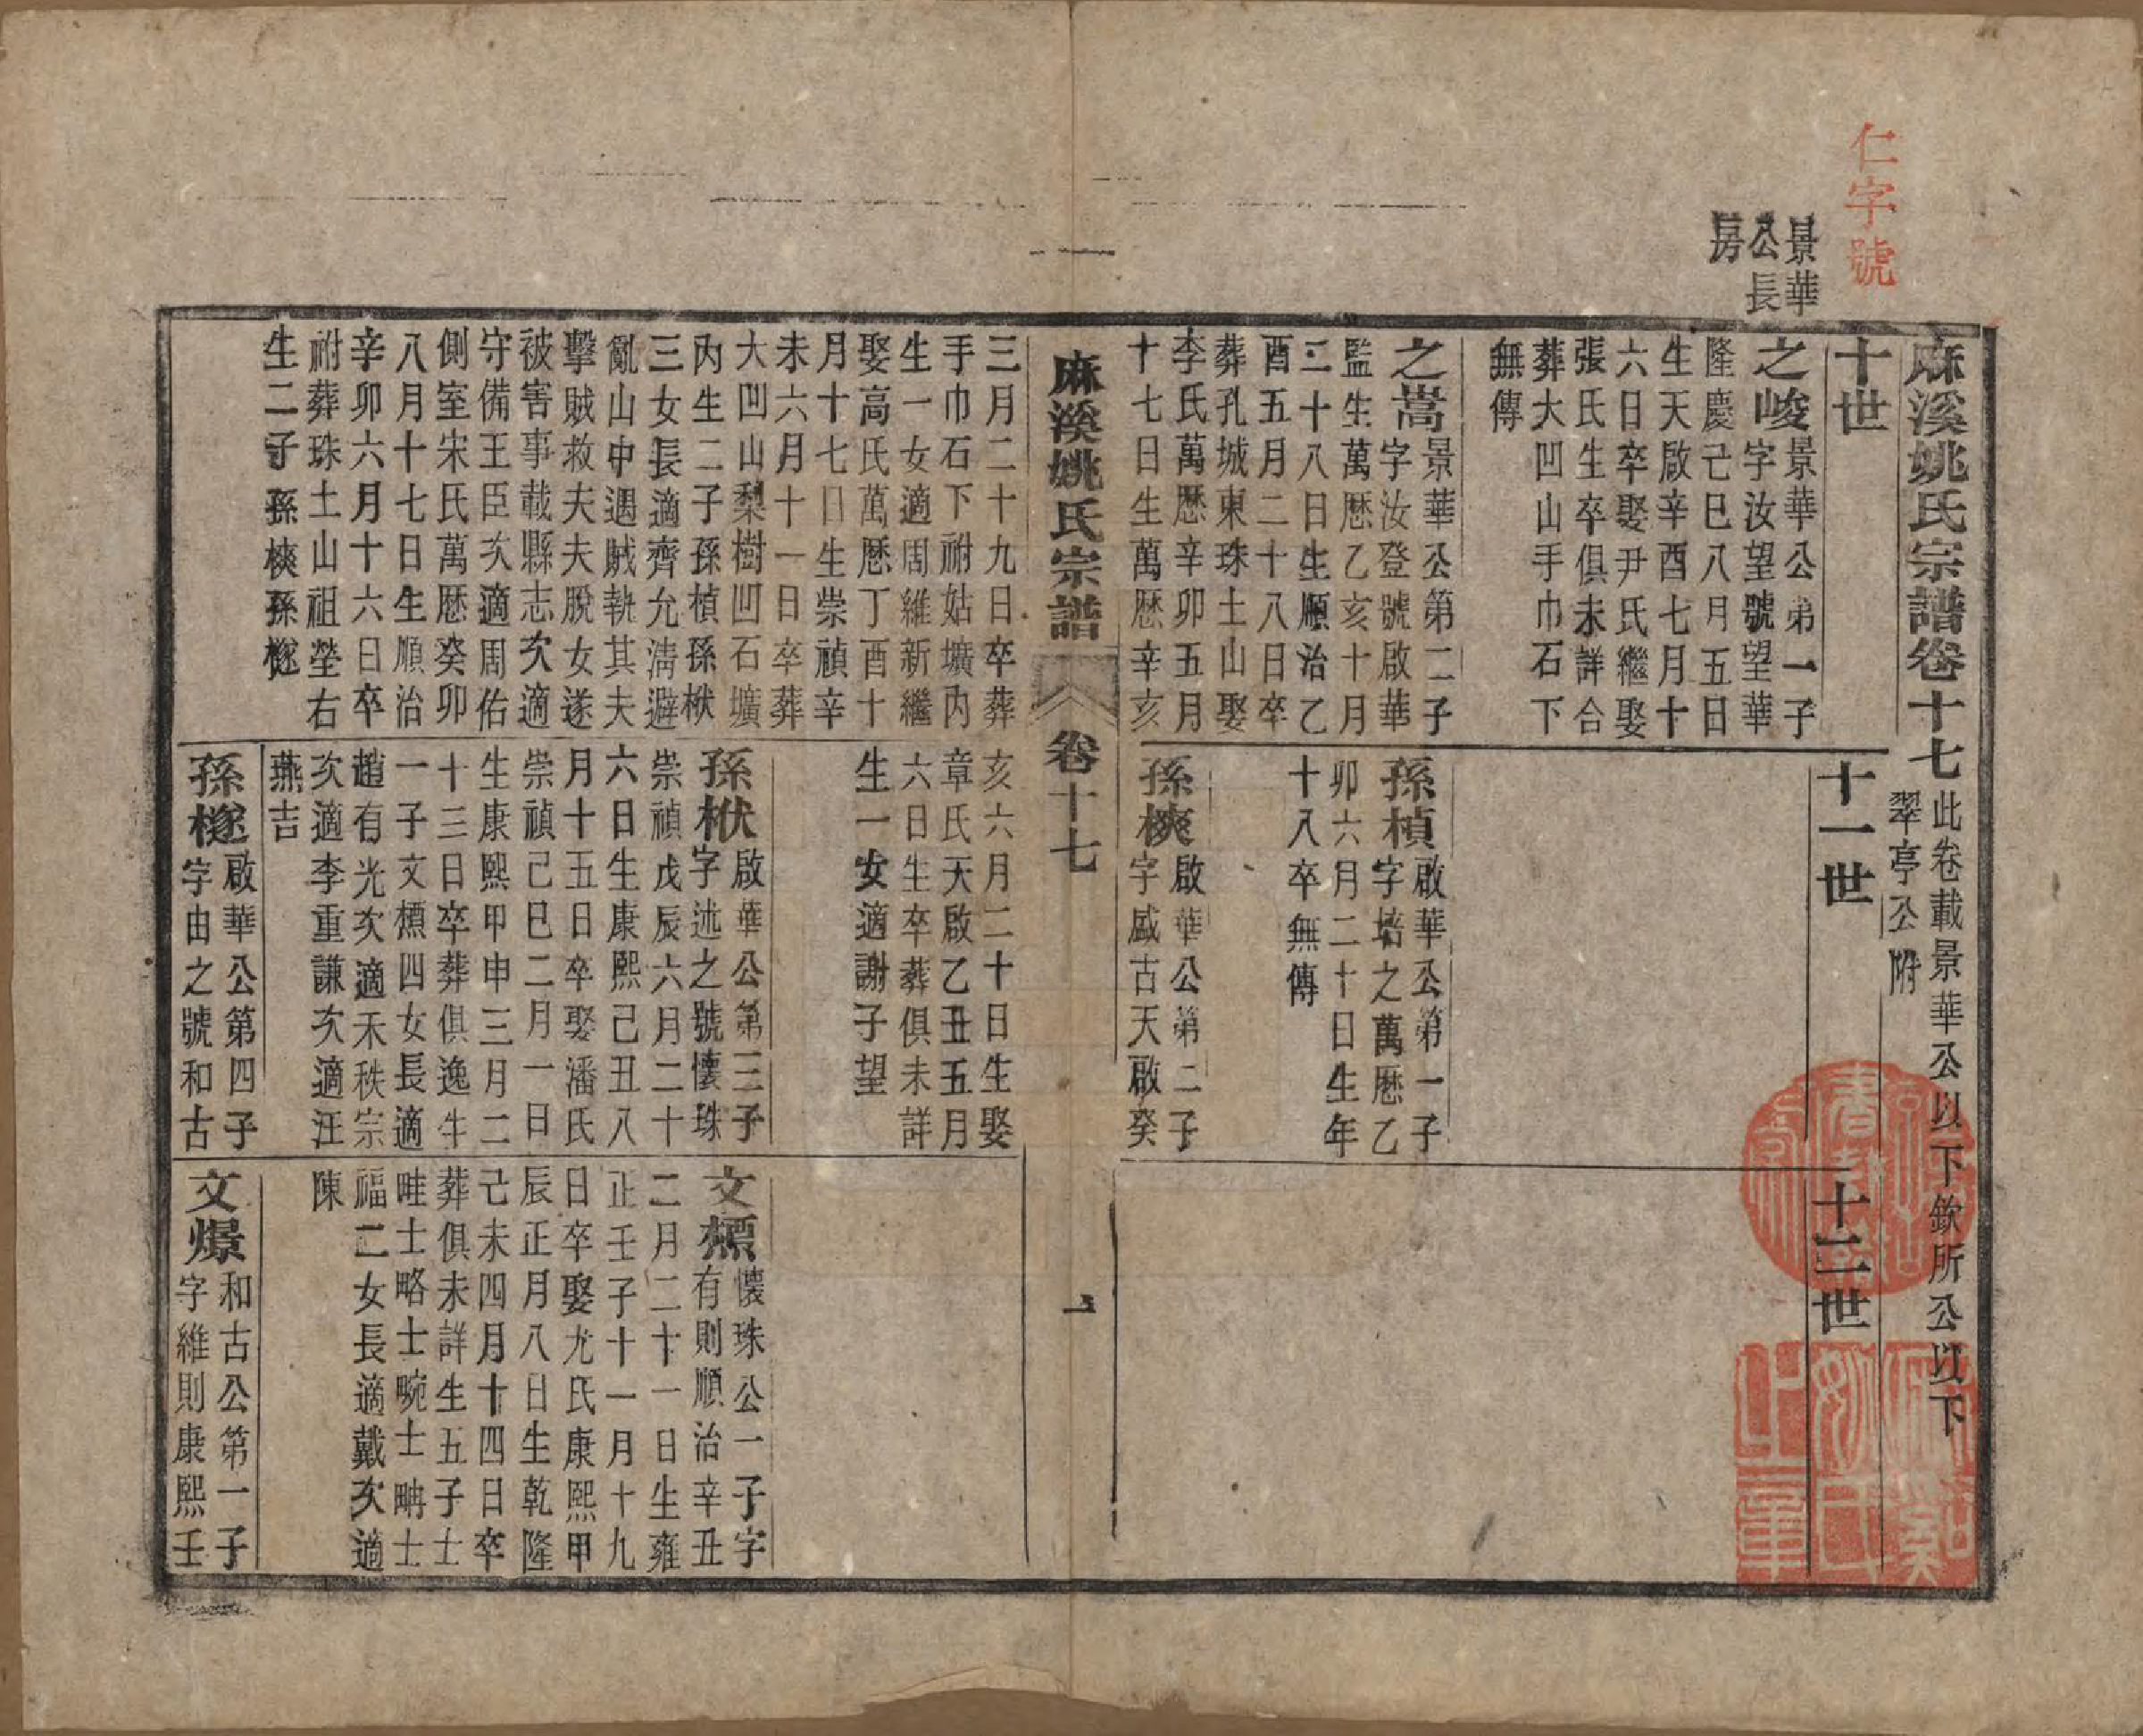 仁字號
景華
公長
房
麻溪姚氏宗譜卷十七
此卷載景華公以下欽所公以下
翠亭公附
十世
十一世
十二世
之峻
景華公弟一子
字汝望號望華
隆慶己巳八月五日
生天啟辛酉七月十
六日卒娶尹氏繼娶
張氏生卒俱未詳合
葬大凹山手巾石下
無傳
之嵩
景華公第二子
字汝登號啟華
監生萬歷乙亥十月
二十八日生順治乙
酉五月二十八日卒
葬孔城東珠土山娶
李氏萬歷辛卯五月
十七日生萬歷辛亥
孫楨
啟華公第一子
字培之萬歷乙
卯六月二十日生年
十八卒無傳
孫樉
啟華公第二子
字咸古天啟癸
麻溪姚氏宗譜
卷十七
一
三月二十九日卒葬
手巾石下祔姑壙內
生一女適周維新繼
娶高氏萬歷丁酉十
月十七日生崇禎辛
未六月十一日卒葬
大凹山梨樹凹石壙
內生二子孫楨孫栿
三女長適齊允淸避
亂山中遇賊執其夫
擊賊救夫夫脫女遂
被害事載縣志次適
守備王臣次適周佑
側室宋氏萬歷癸卯
八月十七日生順治
辛卯六月十六日卒
祔葬珠土山祖塋右
生二子孫樉孫檖
亥六月二十日生娶
章氏天啟乙丑五月
六日生卒葬俱未詳
生一女適謝子望
孫栿
啟華公第三子
字述之號懷珠
崇禎戊辰六月二十
六日生康熙己丑八
月十五日卒娶潘氏
崇禎己巳二月一日
生康熙甲申三月二
十三日卒葬俱逸生
一子文㯹四女長適
趙有光次適禾秩宗
次適李重謙次適汪
燕吉
孫檖
啟華公第四子
字由之號和古
文㯹
懷珠公一子字
有則順治辛丑
二月二十一日生雍
正壬子十一月十九
日卒娶尤氏康熙甲
辰正月八日生乾隆
己未四月十四日卒
葬俱未詳生五子士
畦士略士畹士畴士
福二女長適戴次適
陳
文燝
和古公第一子
字維則康熙壬